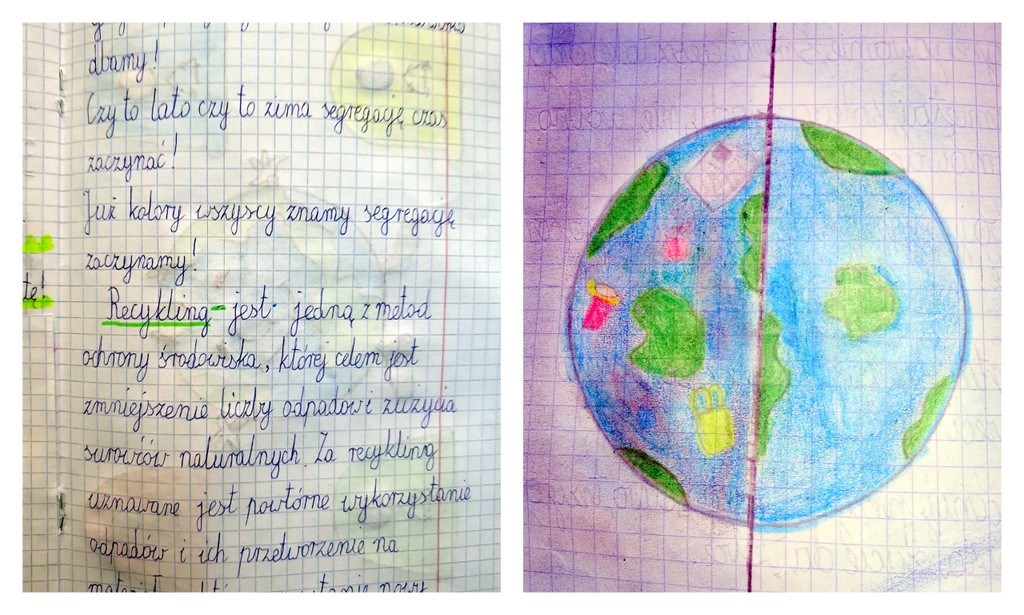 dbamy!
Czy to lato czy to zima segregację czas
zaczynać!
Już kolory wszyscy znamy segregację
zaczynamy!
tę!
Recykling - jest jedną z metod
ochrony środowiska, której celem jest
zmniejszenie liczby odpadów i zużycia
surowców naturalnych. Za recykling
uznawane jest powtórne wykorzystanie
odpadów i ich przetworzenie na